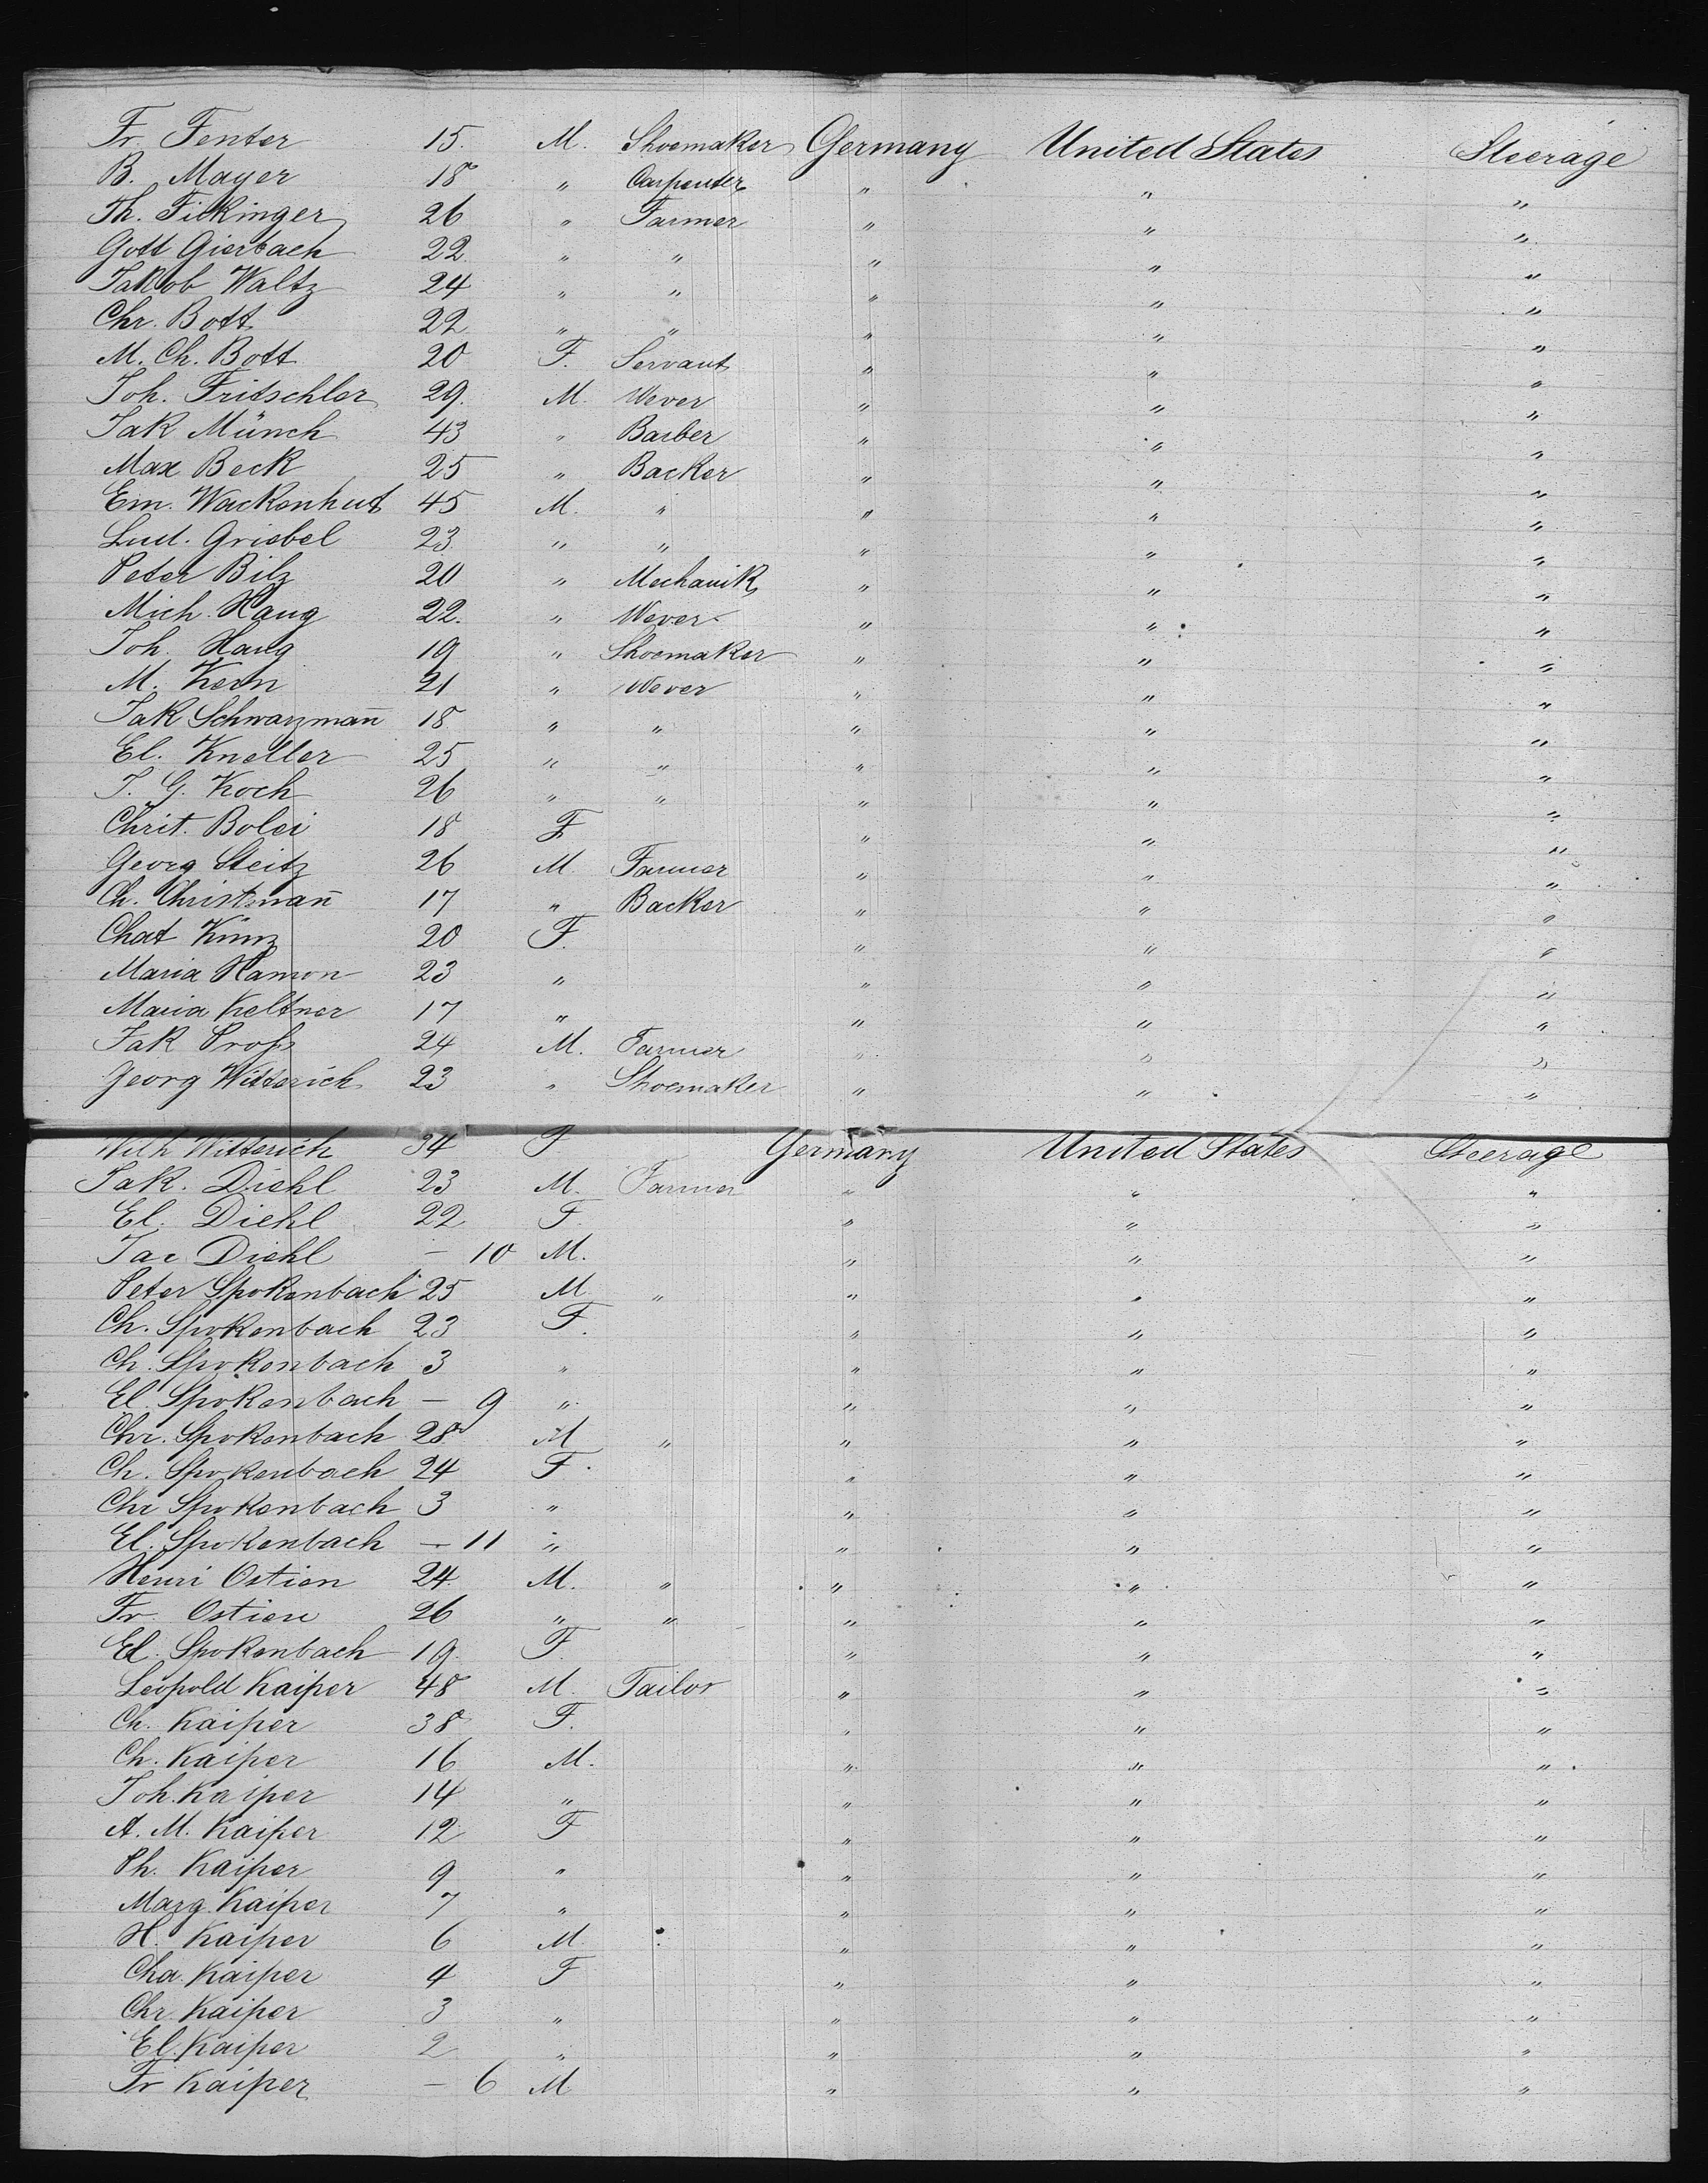 Fr. Fenter 15. M. Shoemaker Germany United States Steerage
B. Mayer 18 " Carpenter " " "
Th. Fickinger 26 " Farmer " " "
Gott Gierbach 22 " " " " "
Jakob Waltz 24 " " " " "
Chr. Bott 22 " " " " "
M. Ch. Bott 20 F. Servant " " "
Joh. Fritschler 29. M. Wever " " "
Jak Münch 43 " Barber " " "
Max Beck 25 " Backer " " "
Em. Wackenhut 45 M. " " " "
Lud. Griebel 23. " " " " "
Peter Bilz 20 " Mechanik " " "
Mich. Haug 22. " Wever " " "
Joh. Haug 19 " Shoemaker " " "
M. Kern 21 " Wever " " "
Jak Schwarzmañ 18 " " " " "
El. Kneller 25 " " " " "
J. G. Koch 26 " " " " "
Chrit. Bolei 18 F " " "
Georg Steitz 26 M Farmer " " "
Ch. Christmañ 17 " Backer " " "
Chat Kunz 20 F. " " "
Maria Hamon 23 " " " "
Maria Keltner 17 " " " "
Jak Pross 24 M. Farmer " " "
Georg Witterich 23 " Shoemaker " " "
Wilh Witterich 34 F Germany United States Steerage
Jak. Diehl 23 M. Farmer " " "
El. Diehl 22 F. " " "
Jac Diehl — 10 M. " " "
Peter Spokenbach 25 M. " " " "
Ch. Spokenbach 23 F. " " "
Ch. Spokenbach 3 " " " "
El. Spokenbach — 9 " " " "
Chr. Spokenbach 28 M " " " "
Ch. Spokenbach 24 F. " " "
Chr Spokenbach 3 " " " "
El. Spokenbach — 11 " " " "
Henri Ostien 24. M. " " " "
Fr. Ostien 26 " " " " "
El. Spokenbach 19. F. " " "
Leopold Kaiper 48 M. Tailor " " "
Ch. Kaiper 38 F. " " "
Ch. Kaiper 16 M. " " "
Joh. Kaiper 14 " " " "
A. M. Kaiper 12 F " " "
Ph. Kaiper 9 " " " "
Marg. Kaiper 7 " " " "
H. Kaiper 6 M " " "
Cha. Kaiper 4 F " " "
Chr. Kaiper 3 " " " "
El. Kaiper 2 " " " "
Fr Kaiper — 6 M " " "